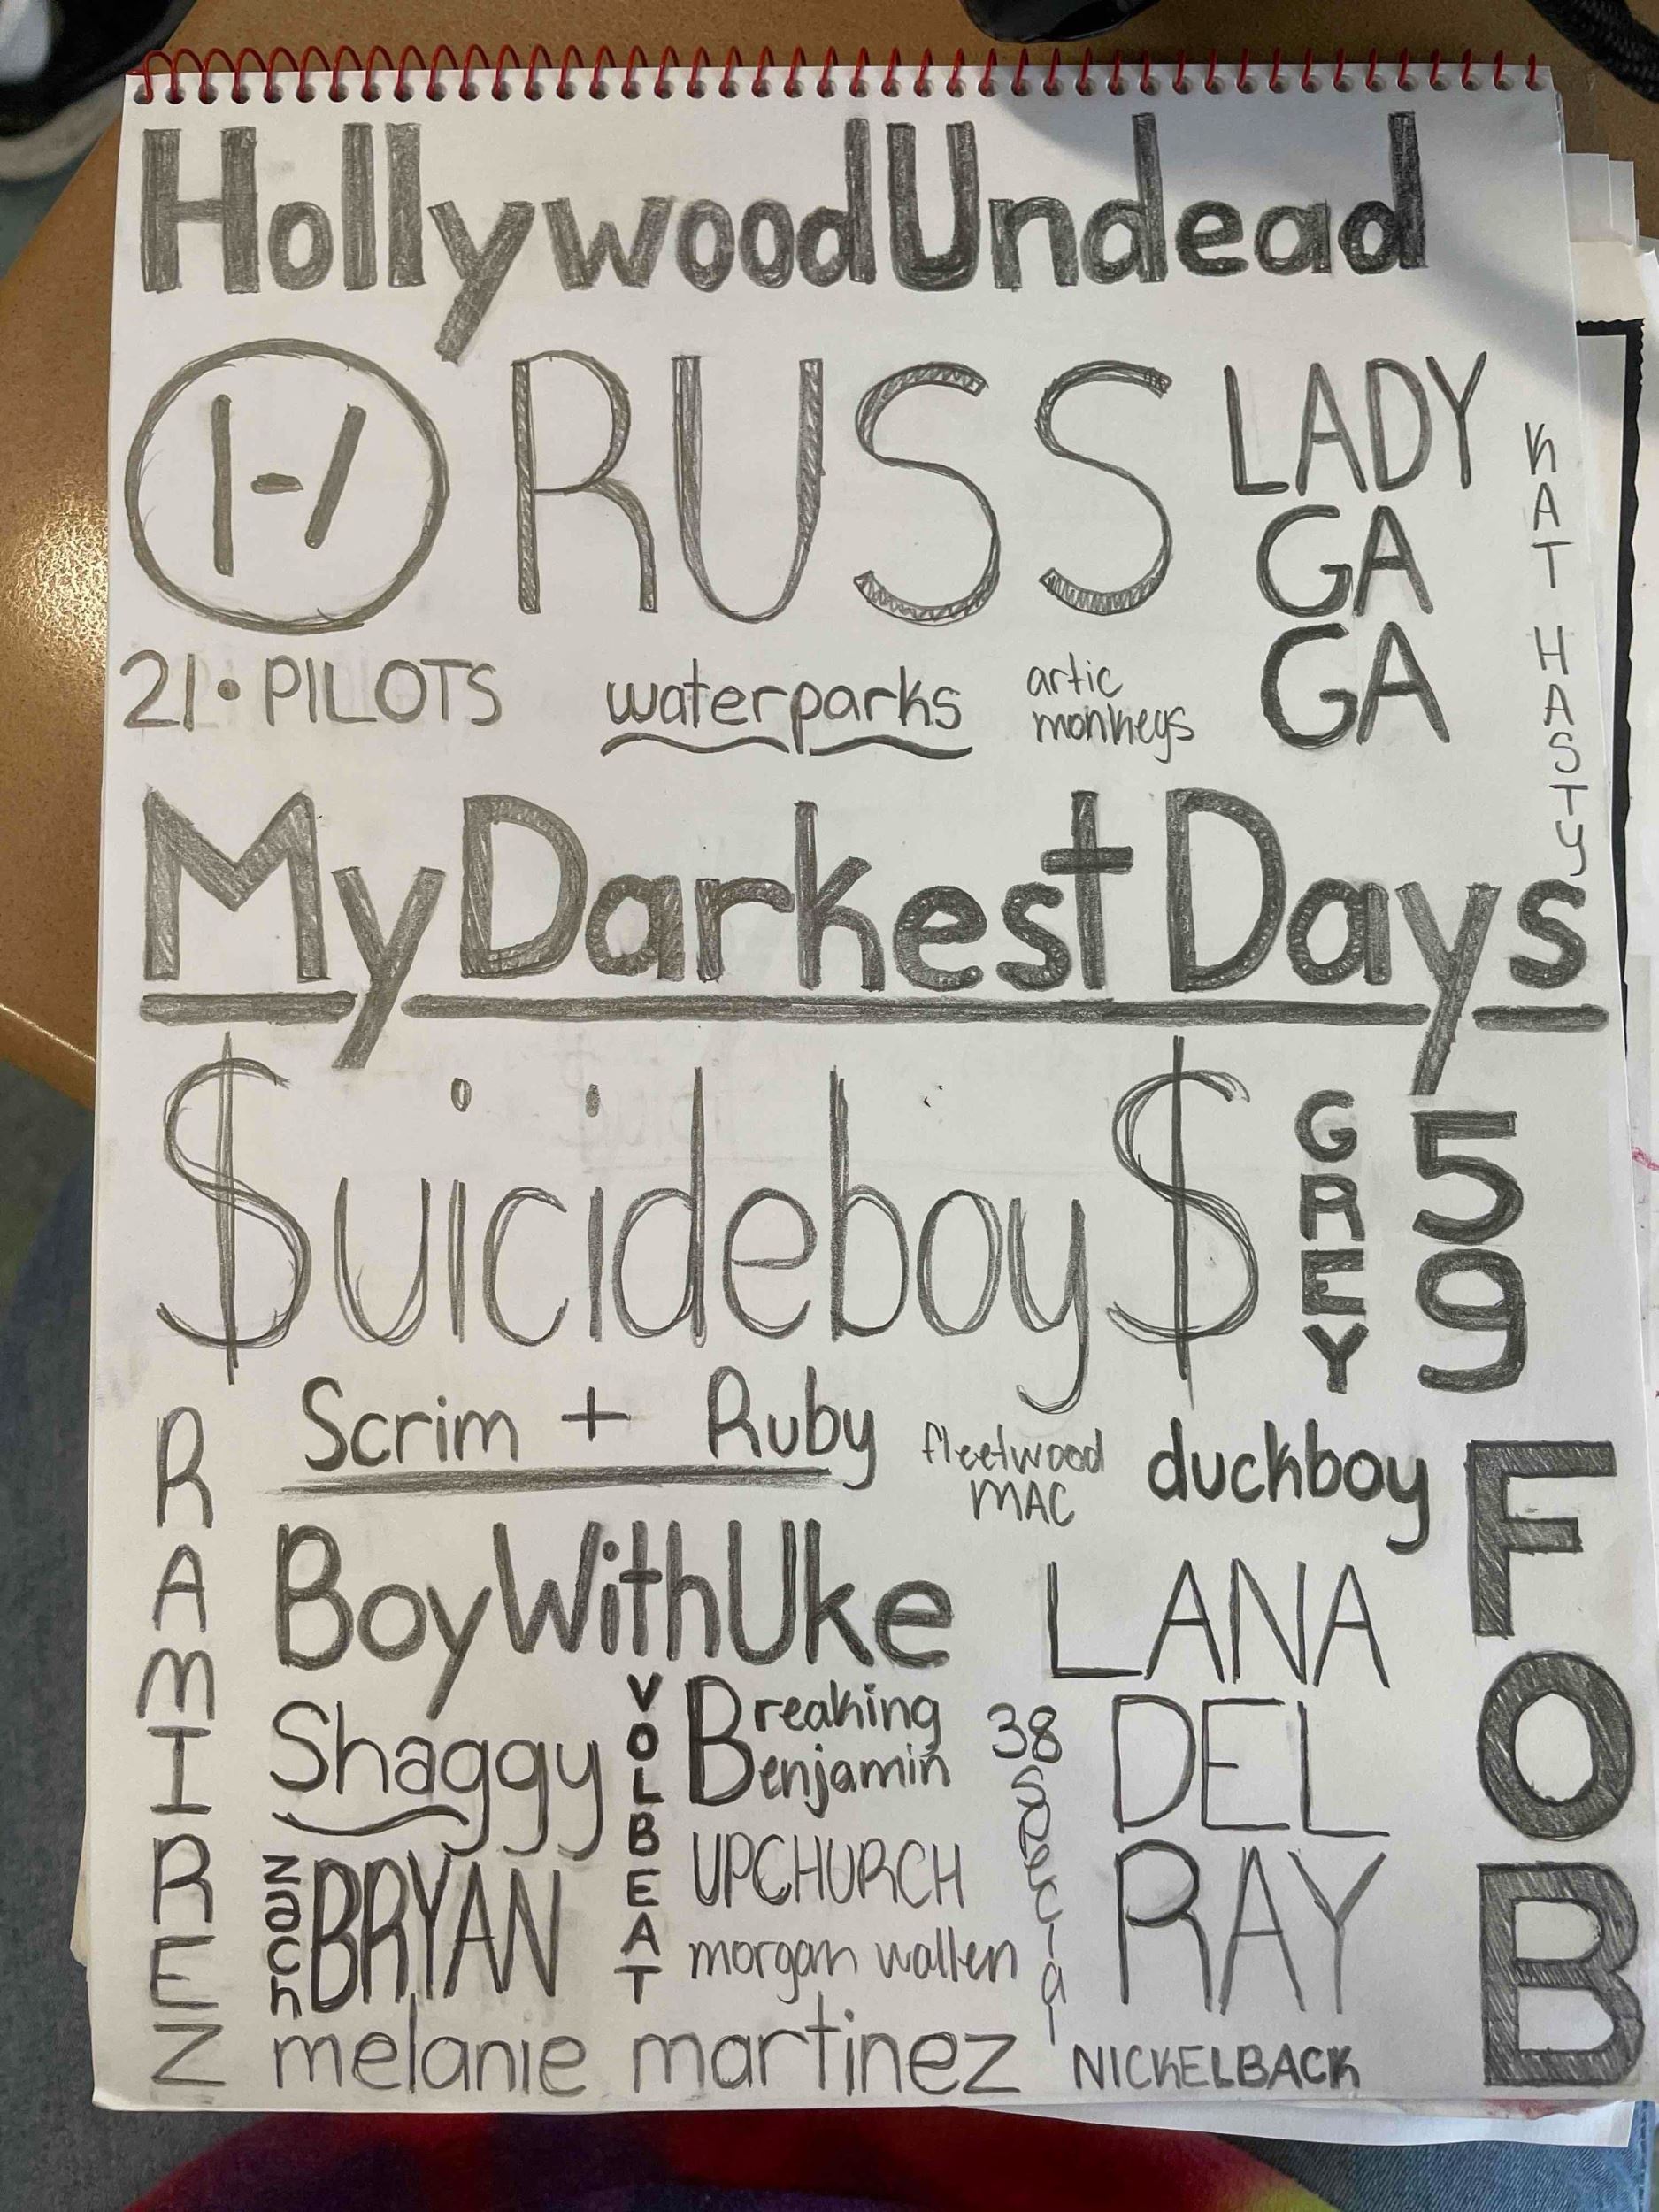 HollywoodUndead
|-/
RUSS
LADY
GA
GA
KAT HASTY
21•PILOTS
waterparks
artic
monkeys
My Darkest Days
$uicideboy$
GREY
59
Scrim + Ruby
fleetwood
MAC
duckboy
RAMIREZ
BoyWithUke
LANA
DEL
RAY
FOB
Shaggy
VOLBEAT
Breaking
Benjamin
38
special
zach
BRYAN
UPCHURCH
morgan wallen
melanie martinez
NICKELBACK